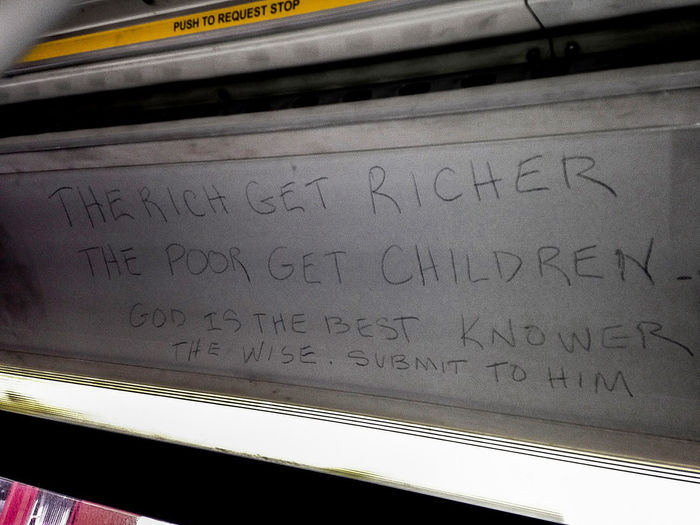 PUSH TO REQUEST STOP
THE RICH GET RICHER
THE POOR GET CHILDREN.
GOD IS THE BEST KNOWER
THE WISE. SUBMIT TO HIM